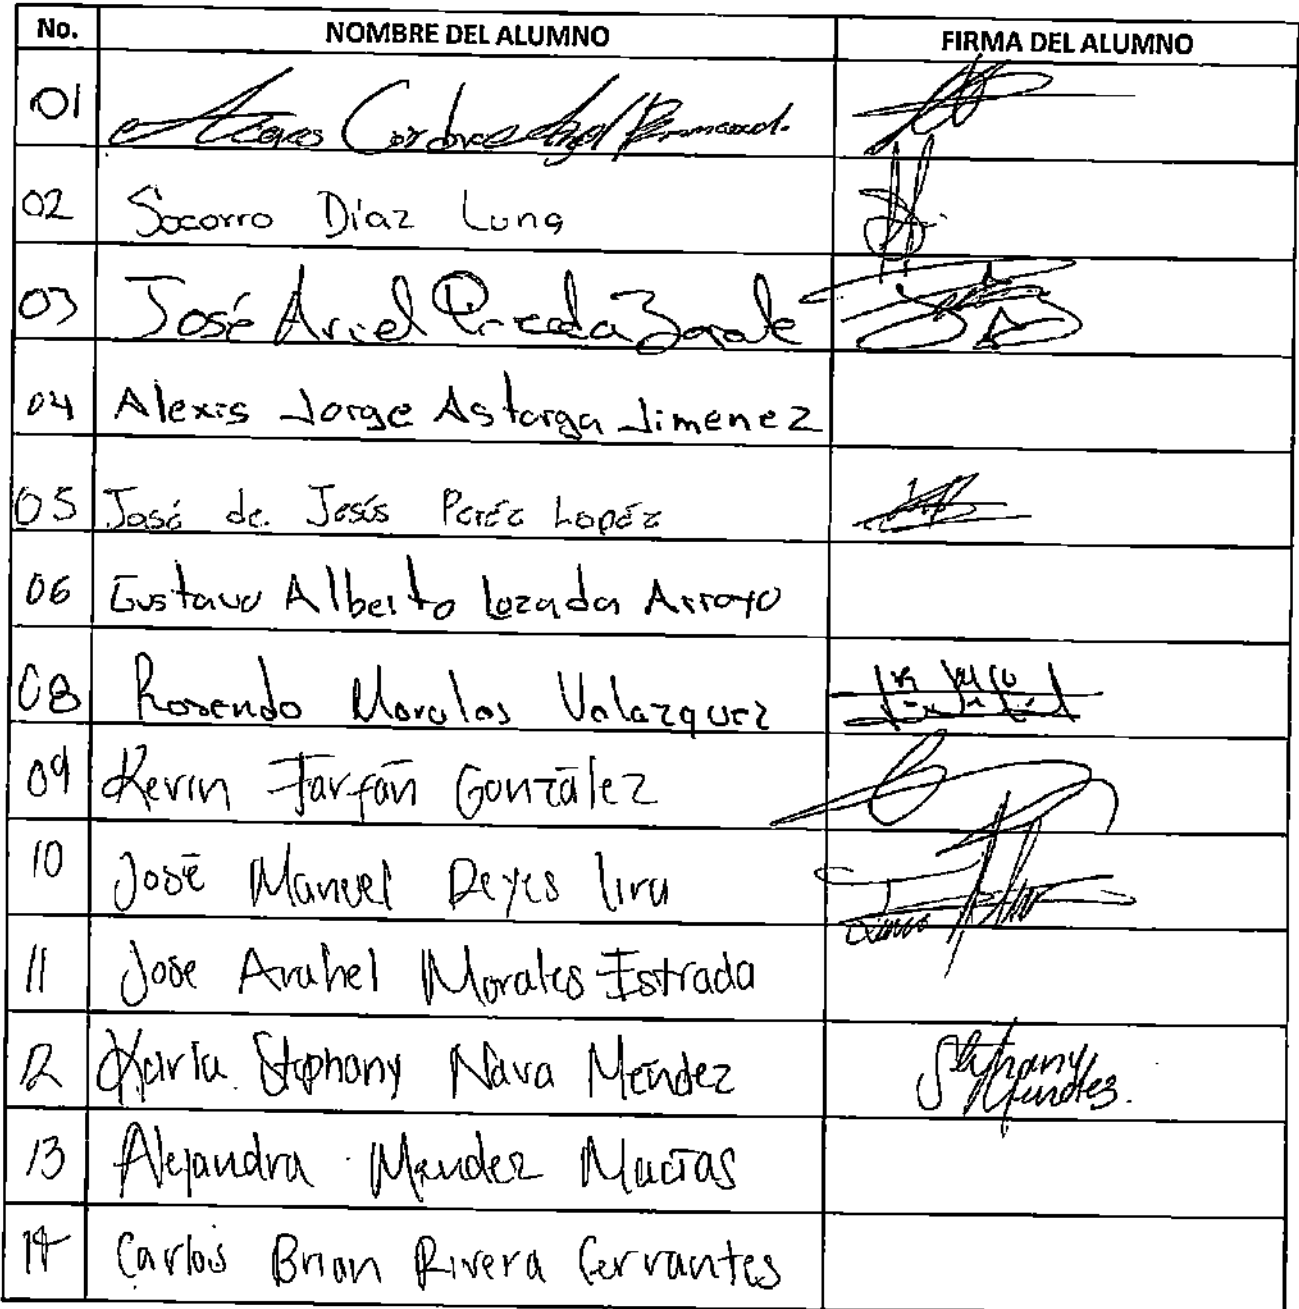 No. NOMBRE DEL ALUMNO FIRMA DEL ALUMNO
01 Cordova
02 Socorro Díaz Luna
03 José Ariel Zarate
04 Alexis Jorge Astorga Jimenez
05 José de Jesús Peréz Lopéz
06 Gustavo Alberto Lozada Arroyo
08 Rosendo Morales Velazquez
09 Kevin Farfán González
10 José Manuel Reyes lira
11 Jose Arahel Morales Estrada
12 Karla Stephany Nava Méndez Stephany Mendez.
13 Alejandra Mendez Macías
14 Carlos Brian Rivera Cervantes